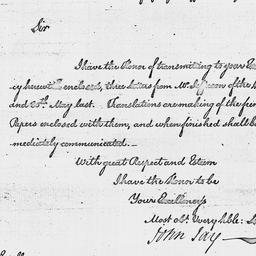 Sir
I have the Honor of transmitting to your
cy herewith enclosed, three letters from Mr. Jefferson of the
and 25th. May last. Translations are making of the
Papers enclosed with them, and when finished shall be
mediately communicated.
With great Respect and Esteem
I have the Honor to be
Your Excellency's
Most Obt. & very hble.
John Jay